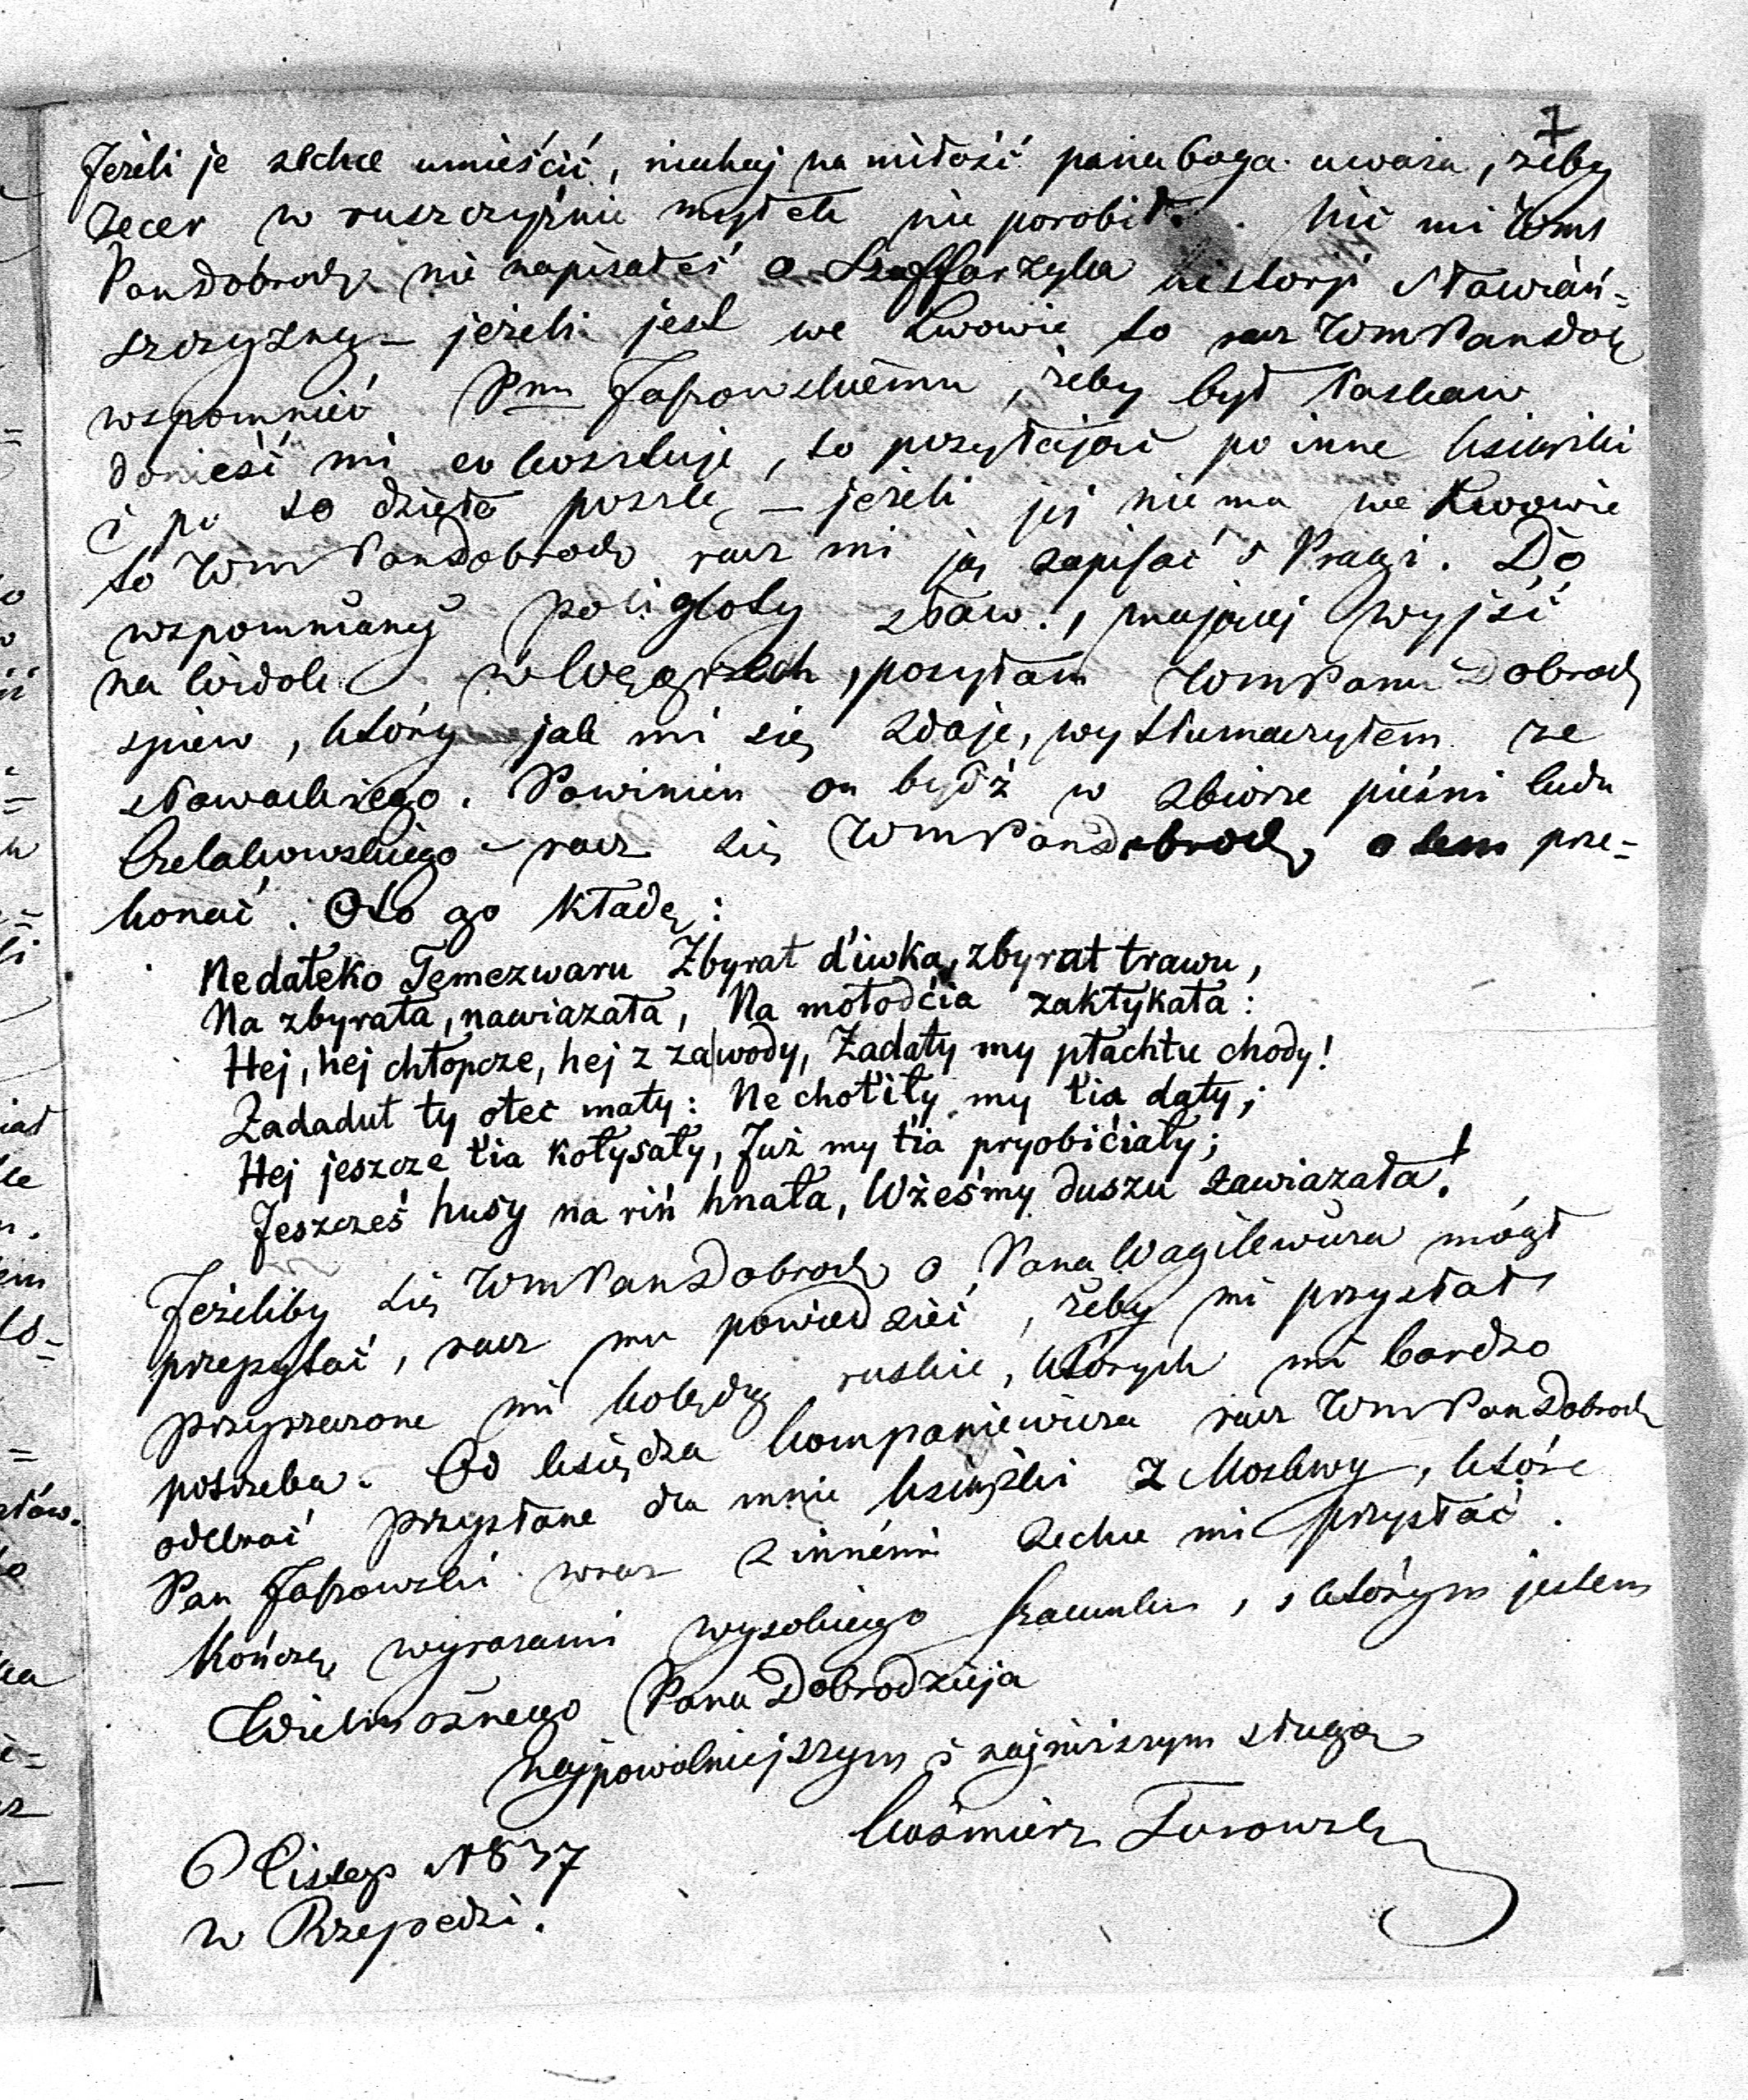 7
Jeżeli je zechce umieścić, niechaj na miłość pana boga uważa, żeby
zecer w ruszczyźnie myłek nie porobił. Nic mi Wm
PanDobrodz nie napisałeś o Szaffarzyka historji Sławiań=
szczyzny – jeżeli jest we Lwowie to racz WmPanDob
wspomnieć Pnu Jabłonskiému, żeby był łaskaw
donieść mi co kosztuje, to posyłając po inne książki
i po to dzieło poszlę – jeżeli jéj nie ma we Lwowie
to Wm PanDobrodz racz mi ją zapisać s Pragi. Do
wspomnianéj poligloty sław., mającéj wyjść
na widok w Węgrzech, posyłam WmPanu Dobrodz
śpiew, który jak mi się zdaje, wytłumaczyłem ze
słowackiego. Powinien on bydź w zbiorze pieśni ludu
Czelakowskiego – racz się WmPanDobrodz o tem prze=
konać. Oto go kładę:
Nedałeko Temezwaru Zbyrat d'iwka, zbyrat trawu,
Na zbyrała, nawiazała, Na mołodćia zakłykała:
Hej, hej chłopcze, hej z zawody, Zadały my płachtu chody!
Zadadut ty oteć maty: Ne chot'iły my t'ia daty;
Hej jeszcze t'ia kołysały, Już my t'ia pryobićiały;
Jeszcześ husy na riń hnała, Wżeśmy duszu zawiazała!
Jeżeliby się WmPanDobrodz o Pana Wagilewicza mógł
przepytać, racz mu powiedzieć, żeby mi przysłał
przyrzeczone mi kolędy ruskie, których mi bardzo
potrzeba. Od księdza Kompaniewicza racz WmPanDobrodz
odebrać przysłane dla mnie książki z Moskwy, które
Pan Jabłonski wraz z innémi zechce mi przysłać.
Kończę wyrazami wysokiego szacunku, s którym jestem
Wielmożnego Pana Dobrodzieja
najpowolniejszym i najniższym sługą
Kaźmierz Turowski
6 Listop 1837
w Rzepedzi.